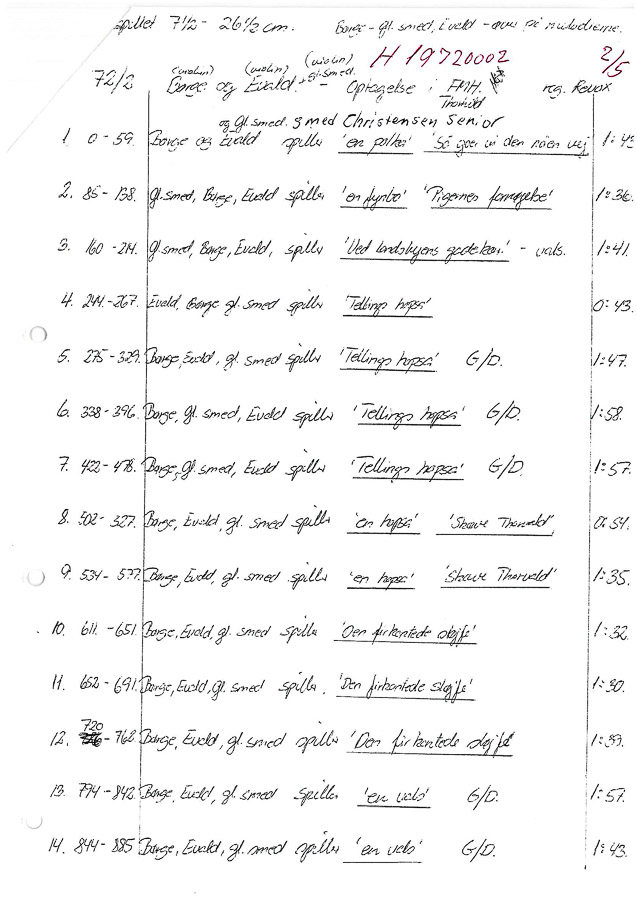 spillet 7½ - 26½ cm. Børge - gl. smed, Evald - øver på melodierne.
H 19720002 2/5
(violin) (violin) (violin)
72/2 Børge og Evald. + gl. smed. - Optagelse i FMH. reg. Revox
Thorvald
og gl. smed. 3 med Christensen Senior
1. 0 - 59. Børge og Evald spiller 'en polka' 'Så goer vi den næen vej 1:43
2. 85 - 138. gl. smed, Børge, Evald spiller 'en fynbo' 'Pigernes fornøjelse' 1:36.
3. 160 - 214. gl. smed, Børge, Evald, spiller 'Ved landsbyens gadekær.' - vals. 1:41.
4. 244. - 267. Evald, Børge gl. smed spiller 'Tellings hopsa' 0:43.
5. 275 - 329. Børge, Evald, gl. smed spiller 'Tellings hopsa' G/D. 1:47.
6. 338 - 396. Børge, gl. smed, Evald spiller 'Tellings hopsa' G/D. 1:58.
7. 422 - 478. Børge, gl. smed, Evald spiller 'Tellings hopsa' G/D. 1:57.
8. 502 - 527. Børge, Evald, gl. smed spiller 'en hopsa' 'Skave Thorvald' 0:54.
9. 534 - 577. Børge, Evald, gl. smed spiller 'en hopsa' 'Skave Thorvald' 1:35.
10. 611. - 651. Børge, Evald, gl. smed spiller 'Den firkantede sløjfe' 1:32.
11. 652 - 691. Børge, Evald, gl. smed spiller. 'Den firkantede sløjfe' 1:30.
12. 720 - 762. Børge, Evald, gl. smed spiller 'Den firkantede sløjfe' 1:39.
13. 794 - 842. Børge, Evald, gl. smed spiller 'en vals' G/D. 1:57.
14. 844 - 885. Børge, Evald, gl. smed spiller 'en vals' G/D. 1:43.